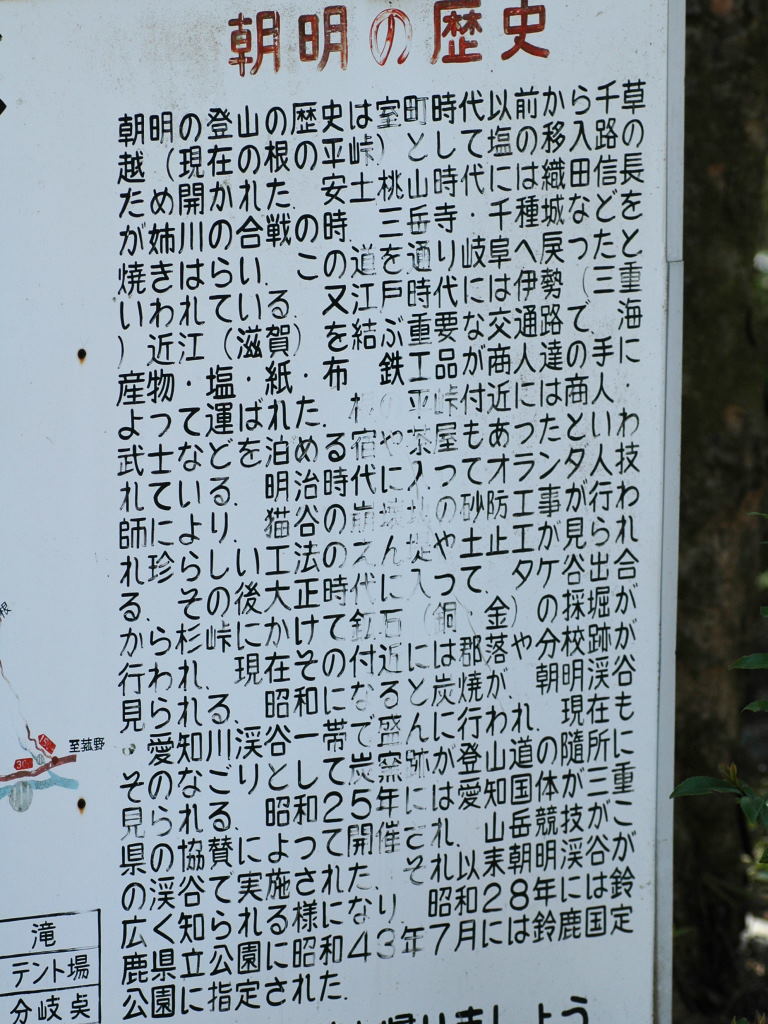 朝明の歴史
朝明の登山の歴史は室町時代以前から千草
越（現在の根の平峠）として塩の移入路の
ため開かれた 安土桃山時代には織田信長
が姉川の合戦の時 三岳寺・千種城などを
焼きはらい この道を通り岐阜へ戻つたと
いわれている.又江戸時代には伊勢（三重
）近江（滋賀）を結ぶ重要な交通路で 海
産物・塩・紙・布・鉄工品が商人達の手に
よって運ばれた.根の平峠付近には商人・
武士などを泊める宿や茶屋もあったといわ
れている.明治時代に入つてオランダ人技
師により猫谷の崩壊地の砂防工事が行われ
珍らしい工法のえん堤や土止工が見られ
る.その後大正時代に タケ谷出合
から杉峠にかけて（銅・金）の採堀が
行われ 現在その付近に 郡落や分校跡が
見られる.昭和になると炭焼が 朝明渓谷
愛知川渓谷一帯で盛んに行われ 現在も
そのなごりとして炭窯跡が 隨所に
見られる.昭和25年には愛知国体 三重
県の協賛で開催され登山岳競技がこ
の渓谷で実施された.それ以来朝明渓谷が
広く知られる様になり.昭和28年には鈴
鹿県立公園に 昭和43年7月には鈴鹿国定
公園に指定された.
至菰野
滝
テント場
分岐点
帰りましょう